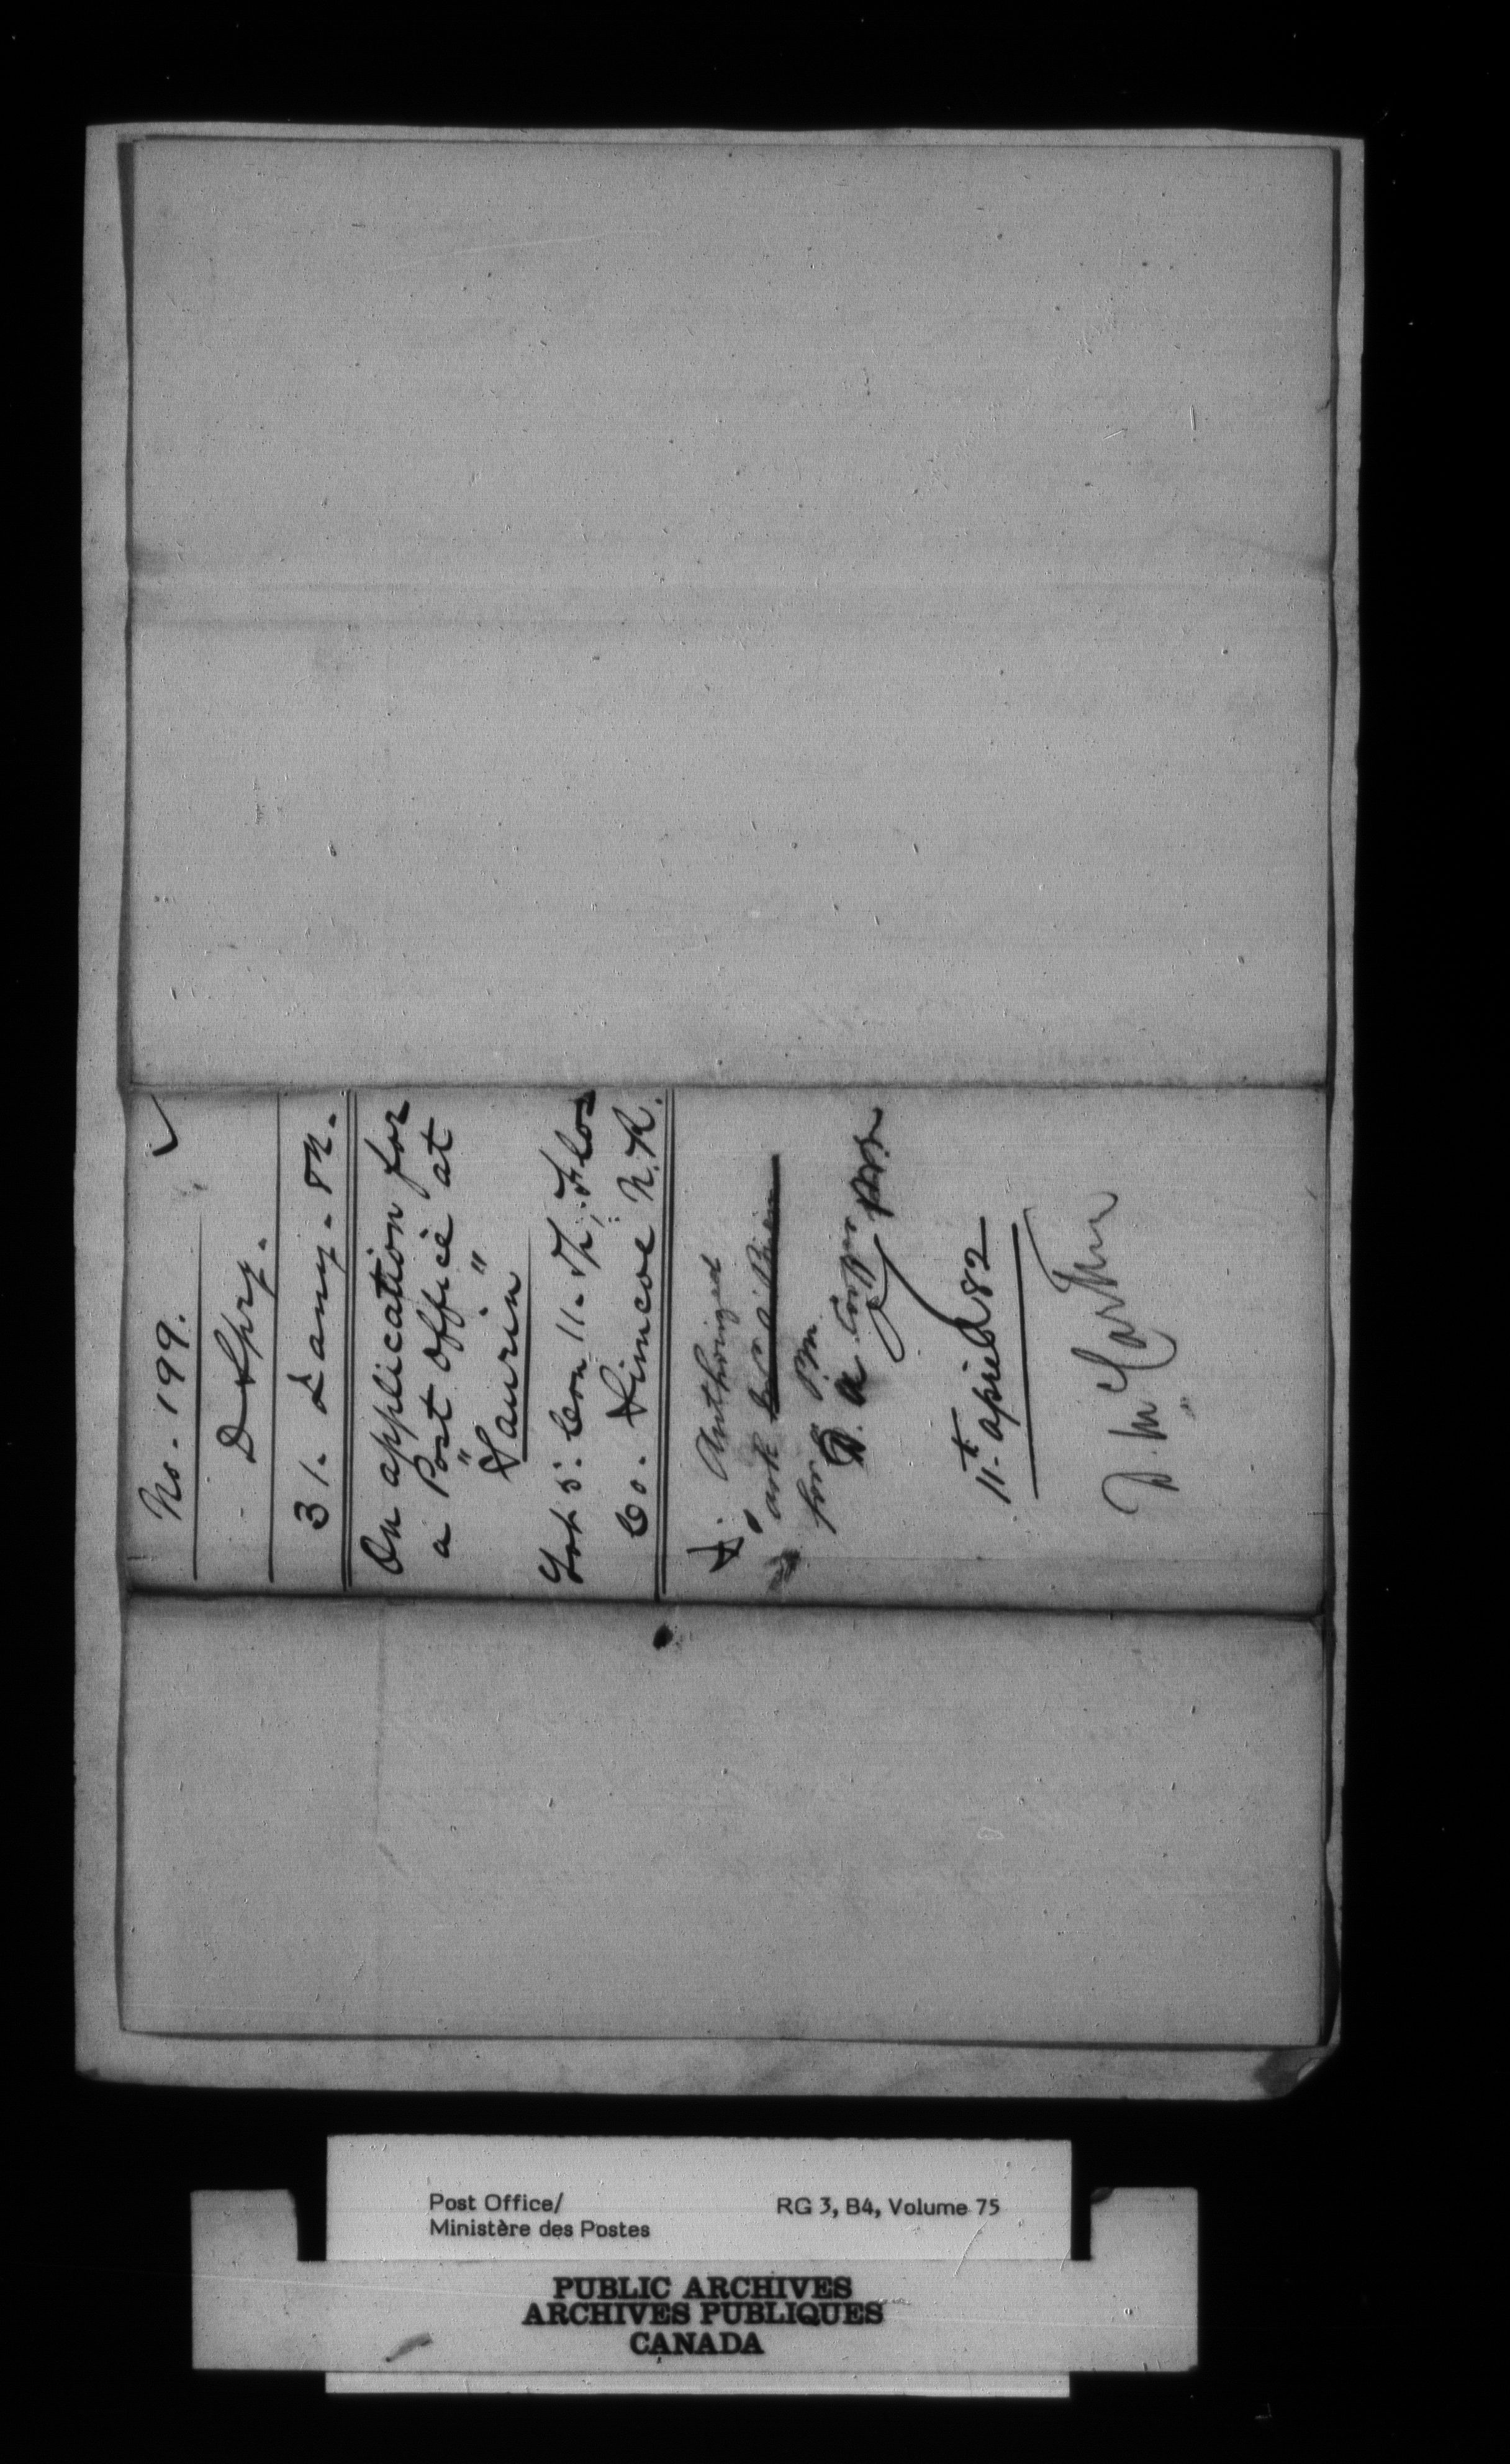 No. 199.
D Spry.
31. Jany. 82.
On application for
a Post Office at
"Saurin"
Lot 5. Con 11. Tp. Flos
Co. Simcoe N.R.
Authorized
ask
for PM
D. A.
11th April 82
D. McCarthy
Post Office/
Ministère des Postes
RG 3, B4, Volume 75
PUBLIC ARCHIVES
ARCHIVES PUBLIQUES
CANADA